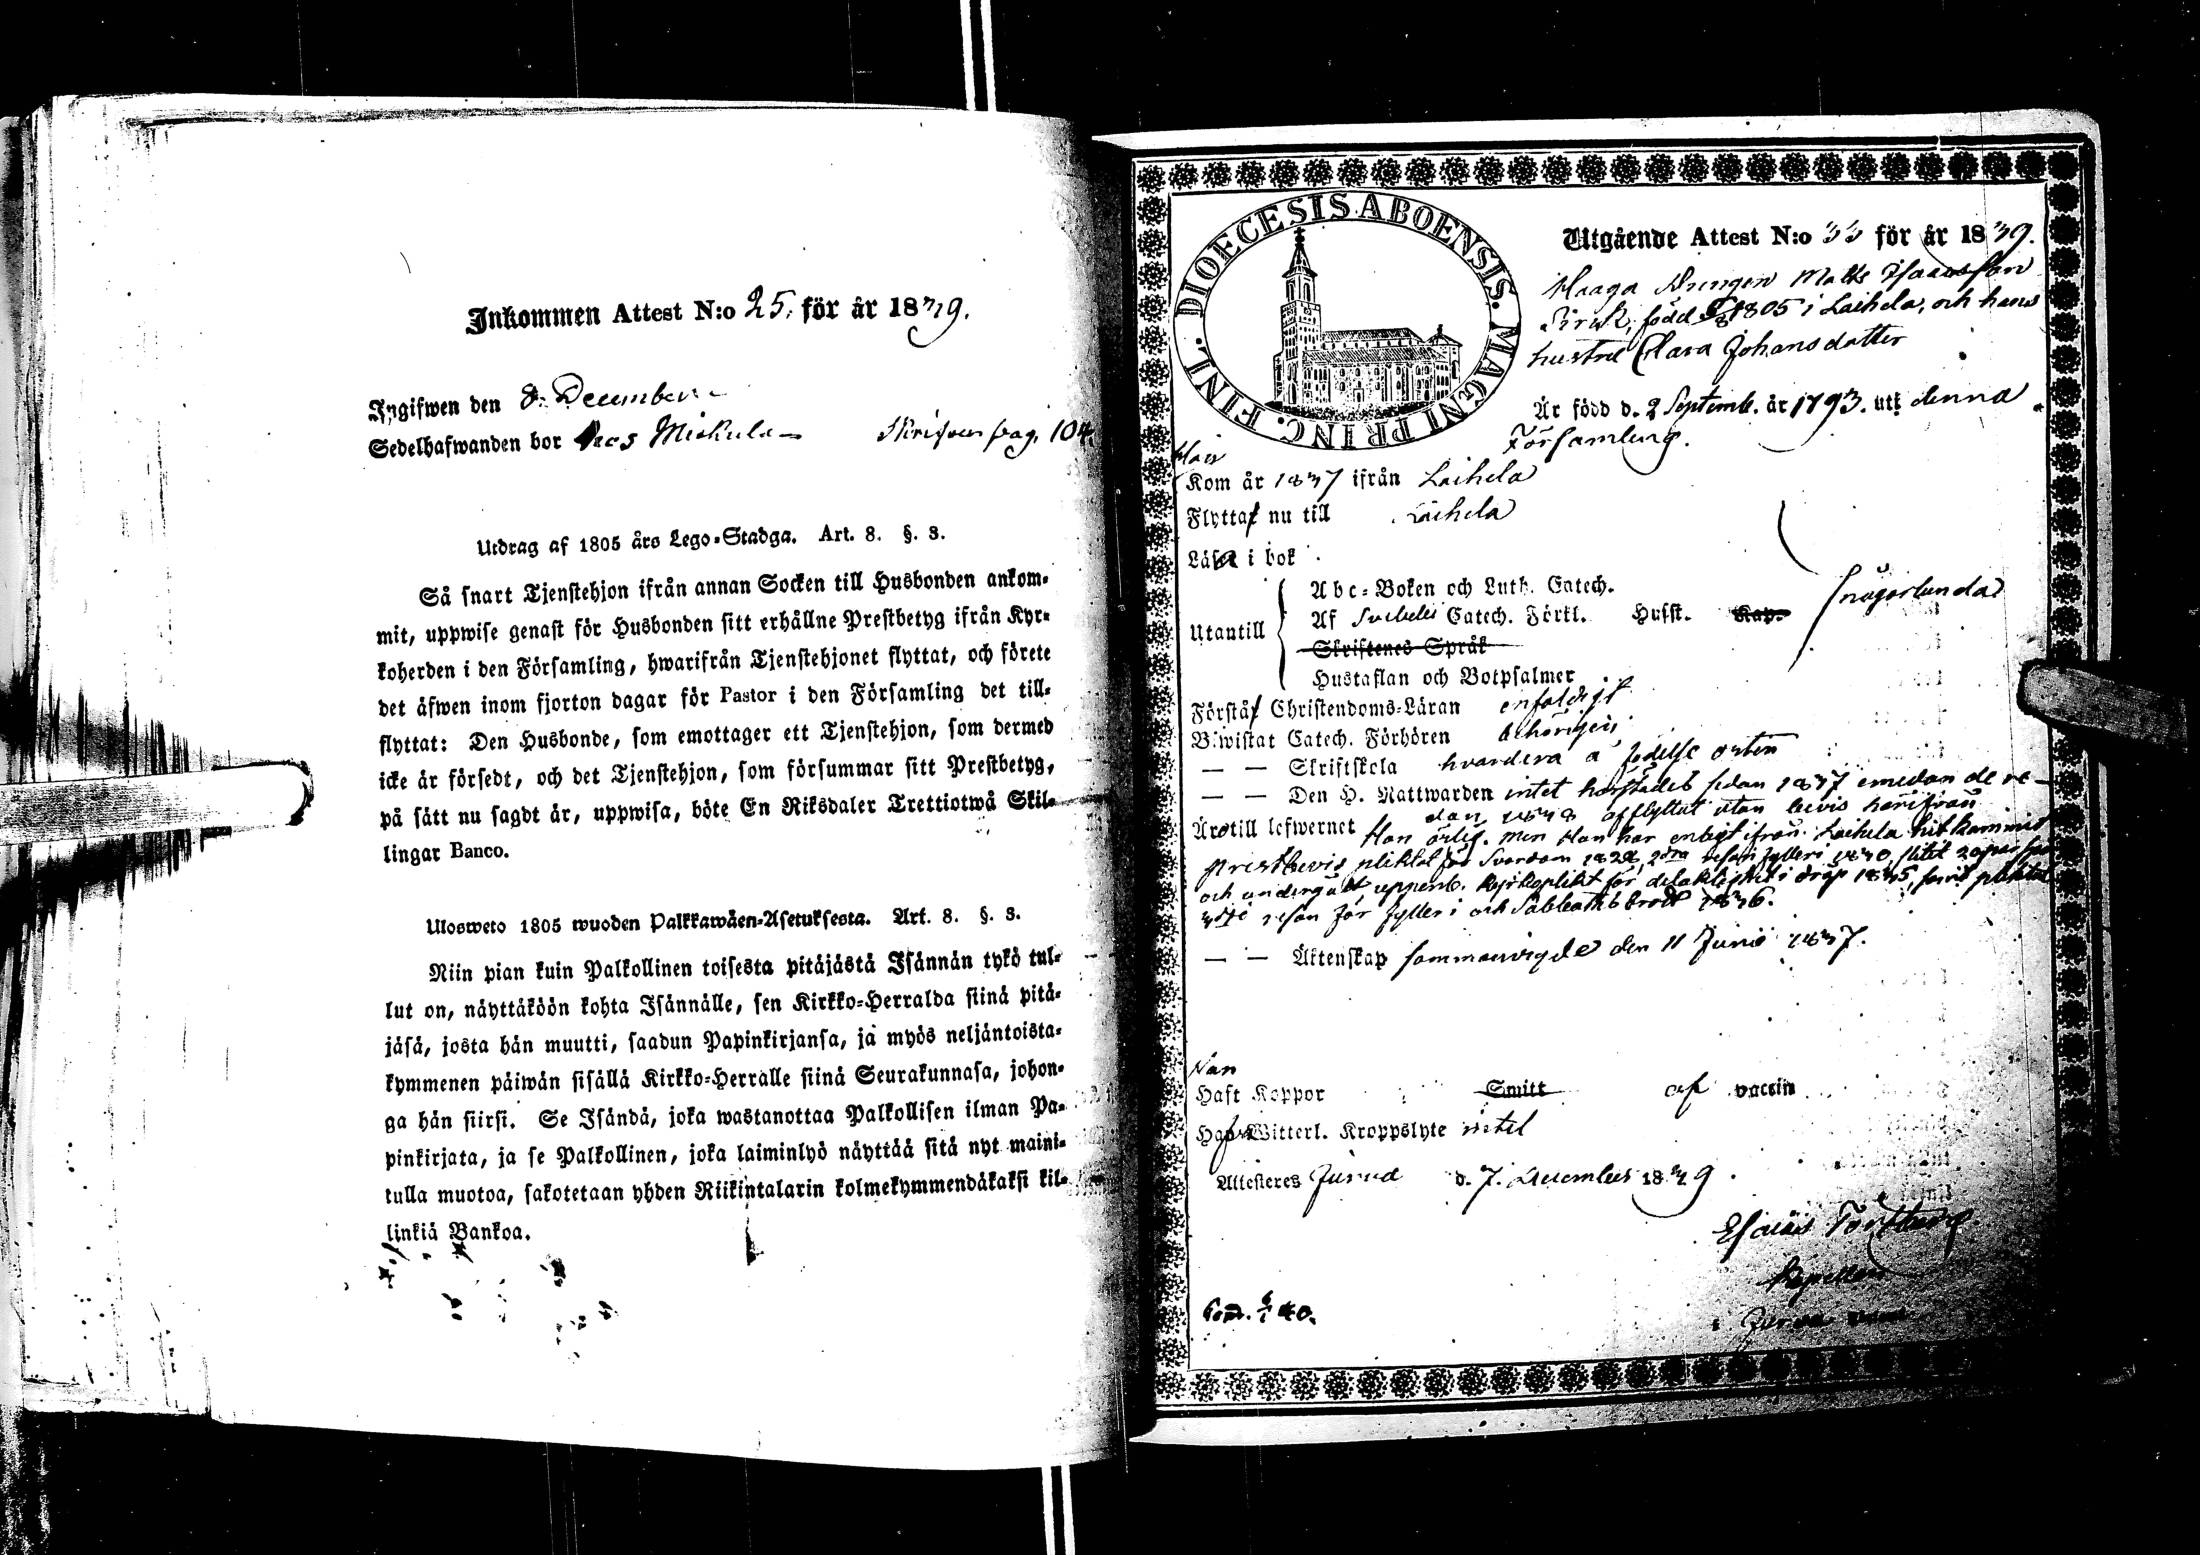 Inkommen Attest N:o 25. för år 1839.
Ingifwen den 8. December
Sedelhafwanden bor hos Mickula Skrifven pag. 104.
Utdrag af 1805 års Lego-Stadga. Art. 8. §. 3.
Så snart Tjenstehjon ifrån annan Socken till Husbonden ankom-
mit, uppwise genast för Husbonden sitt erhållne Prestbetyg ifrån Kyr-
koherden i den Församling, hwarifrån Tjenstehjonet flyttat, och förete
det äfwen inom fjorton dagar för Pastor i den Församling det till-
flyttat: Den Husbonde, som emottager ett Tjenstehjon, som dermed
icke är försedt, och det Tjenstehjon, som försummar sitt Prestbetyg,
på sätt nu sagdt är, uppwisa, böte En Riksdaler Trettiotwå Skil-
lingar Banco.
Ulosweto 1805 wuoden Palkkawäen-Asetuksesta. Art. 8. §. 3.
Niin pian kuin Palkollinen toisesta pitäjästä Isännän tykö tul-
lut on, näyttäköön kohta Isännälle, sen Kirkko-Herralda siinä pitä-
jäsä, josta hän muutti, saadun Papinkirjansa, ja myös neljäntoista-
kymmenen päiwän sisällä Kirkko-Herralle siinä Seurakunnasa, johon-
ga hän siirsi. Se Isändä, joka wastanottaa Palkollisen ilman Pa-
pinkirjata, ja se Palkollinen, joka laiminlyö näyttää sitä nyt maini-
tulla muotoa, sakotetaan yhden Riikintalarin kolmekymmendäkaksi kil-
linkiä Bankoa.
DIOECESIS ABOENSIS. MAGNI PRINC. FINL.
Utgående Attest N:o 33 för år 1839.
Matts Isaacsson
född 1805 i Laihela, och hans
hustru Clara Johansdotter
Är född d. 2 Septemb. år 1793. uti denna
Församling.
Han
Kom år 1837 ifrån Laihela
Flytta nu till Laihela
Läsa i bok
Utantill
Abc-Boken och Luth. Catech.
Af Svebelii Catech. Förkl. Husst. Kap.
Skriftenes Språk
Hustaflan och Botpsalmer
någorlunda
Förstå Christendoms-Läran enfaldigt
Biwistat Catech. Förhören behörigen
— — Skriftskola hvardera å födelse orten
— — Den H. Nattwarden intet härstädes sedan 1837 emedan de re-
dan 1838 afflyttat utan bevis härifrån
Äro till lefwernet Hon ärlig. men Han har enligt ifrån Laihela hitkommit
prestbevis pliktat för Svordom 2dra resan fylleri 1830,
och undergått uppenb. kyrkoplikt för delaktighet i dråp 1835, samt pliktat
3dje resan för fylleri och Sabbathsbrott 1836.
— — Äktenskap sammanvigde den 11 Junii 1837.
Haft Koppor Smitt af vaccin
Witterl. Kroppslyte intet
Attesteres Jurva d. 7. December 1839.
Esaias
Kapellan
i Jurva